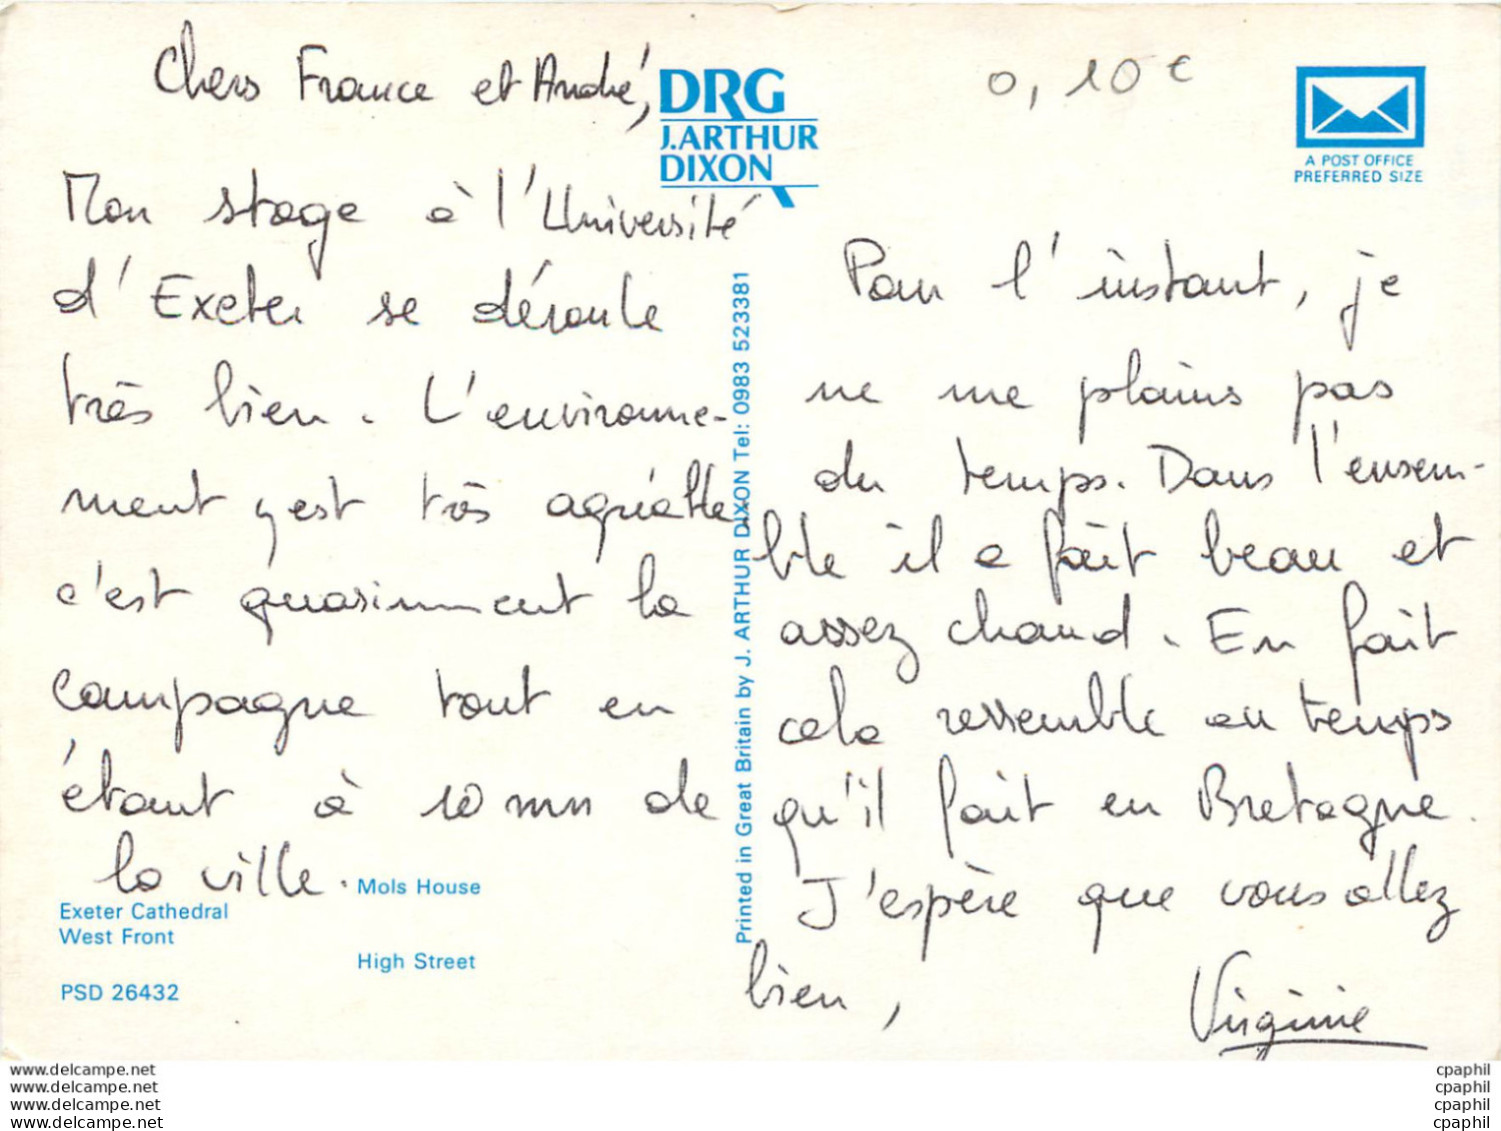 Chers France et André,
Mon stage à l'Université
d'Exeter se déroule
très bien. L'environne-
ment y est très agréable,
c'est quasiment la
campagne tout en
étant à 10 mn de
la ville.
DRG
J.ARTHUR
DIXON
0,10 €
A POST OFFICE
PREFERRED SIZE
Pour l'instant, je
ne me plains pas
du temps. Dans l'ensem-
ble il a fait beau et
assez chaud. En fait
cela ressemble au temps
qu'il fait en Bretagne.
J'espère que vous allez
bien,
Virginie
Printed in Great Britain by J. ARTHUR DIXON Tel: 0983 523381
Mols House
Exeter Cathedral
West Front
High Street
PSD 26432
www.delcampe.net
www.delcampe.net
www.delcampe.net
www.delcampe.net
cpaphil
cpaphil
cpaphil
cpaphil